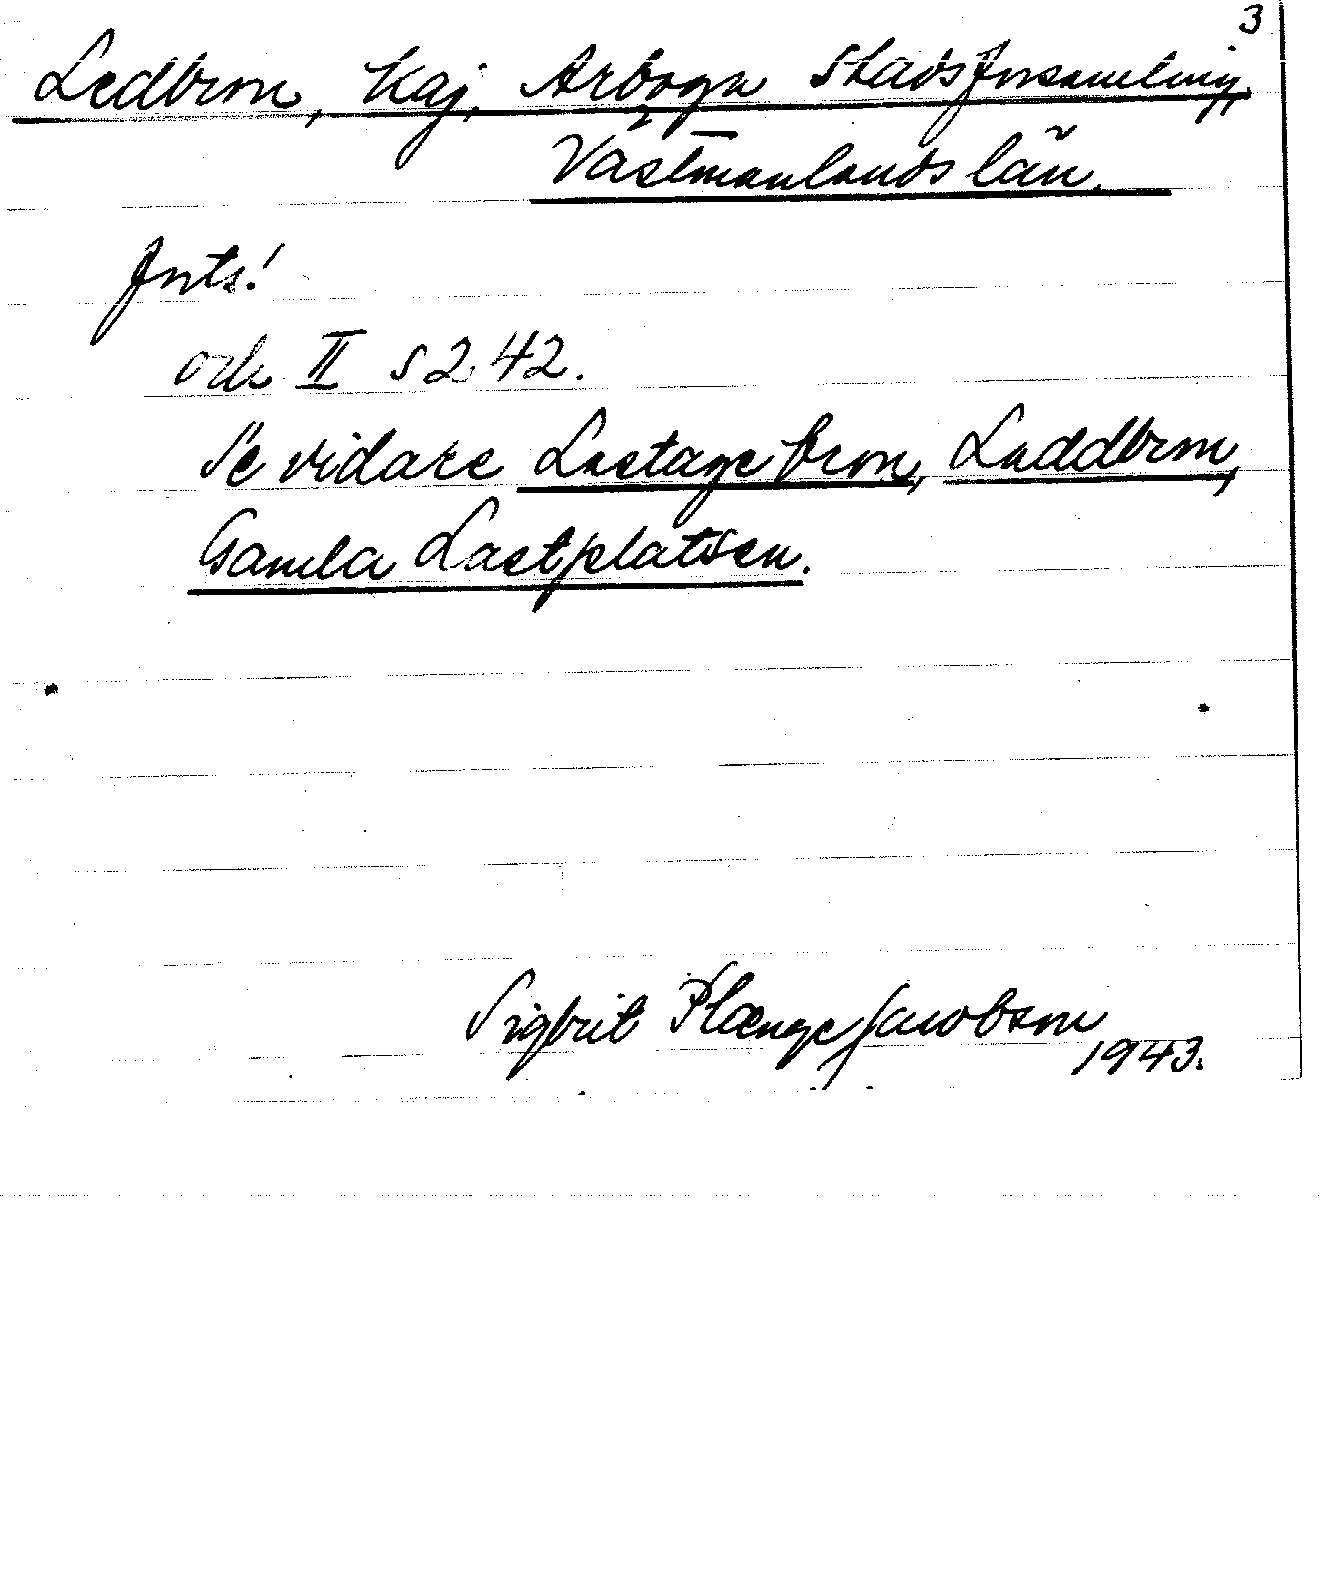 3
Ledbron, Kaj, Arboga Stadsförsamling,
Västmanlands län.
forts!
och II s 242.
Se vidare Lastagebron, Laddbron,
Gamla Lastplatsen.
Sigbrit Plænge Jacobson
1943.